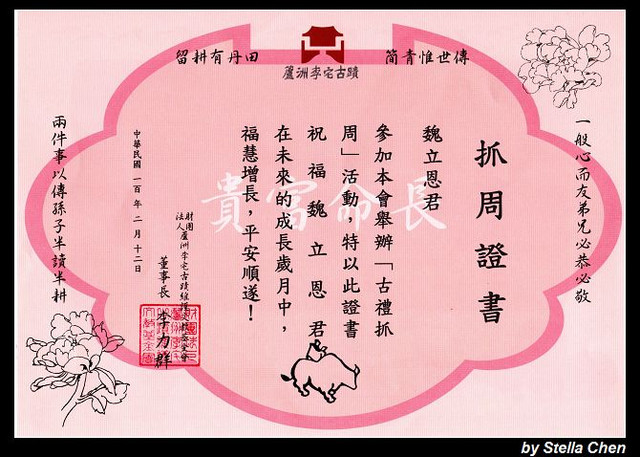 傳世惟青簡
留耕有丹田
蘆洲李宅古蹟
一般心而友弟兄必恭必敬
抓周證書
魏立恩君
參加本會舉辦「古禮抓
周」活動，特以此證書
祝福魏立恩君
在未來的成長歲月中，
福慧增長，平安順遂！
長命富貴
財團
法人蘆洲李宅古蹟維護文教基金會
董事長 李力群
中華民國一百年二月十二日
兩件事以傳孫子半讀半耕
by Stella Chen